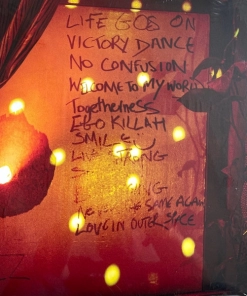 LIFE GOES ON
VICTORY DANCE
NO CONFUSION
WELCOME TO MY WORLD
Togetherness
EGO KILLAH
SMILE
LIVE STRONG
SAME AGAIN
LOVE IN OUTER SPACE